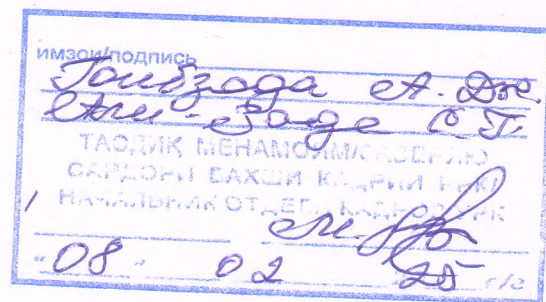 имзои/подпись
Гоибзода А. Дж.
Али-Заде С.П.
ТАСДИҚ МЕНАМОЯМ/ЗАВЕРЯЮ
САРДОРИ БАХШИ КАДРИИ
НАЧАЛЬНИК ОТДЕЛА КАДРОВ
"08" 02 25 с/г